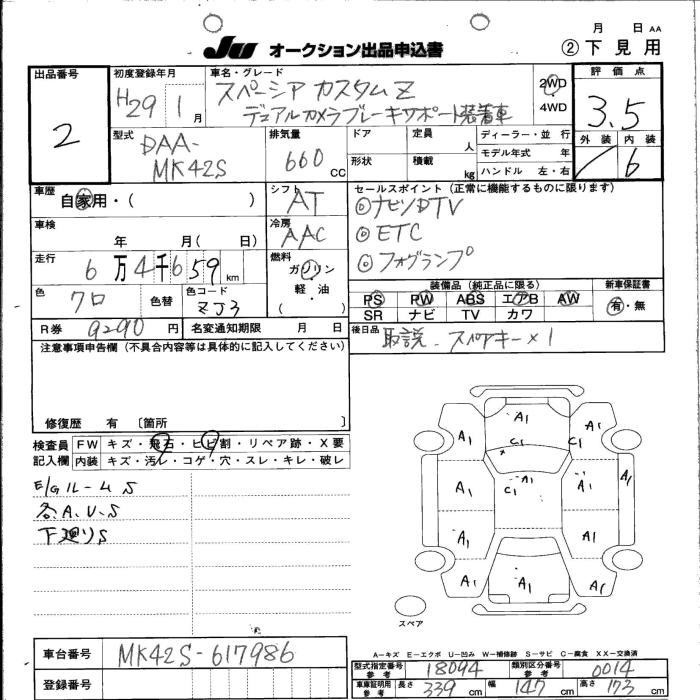 月 日 AA
JU オークション出品申込書
② 下見用
出品番号
2
初度登録年月
H29 1 月
車名・グレード
スペーシア カスタムZ
デュアルカメラブレーキサポート装着車
2WD
4WD
評価点
3.5
外装 内装
6
型式
DAA-
MK42S
排気量
660 cc
ドア
定員 人
形状
積載 kg
ディーラー・並行
モデル年式 年
ハンドル 左・右
車歴
自家用・( )
シフト
AT
セールスポイント(正常に機能するものに限ります)
◎ナビソDTV
◎ETC
◎フォグランプ
車検
年 月( 日)
冷房
AAC
走行
6万4千659 km
燃料
ガソリン
軽・油
( )
色
クロ
色替
色コード
ZJ3
装備品(純正品に限る)
PS PW ABS エアB AW
SR ナビ TV カワ
新車保証書
有・無
R券 9290 円
名変通知期限 月 日
後日品
取説 - スペアキー×1
注意事項申告欄(不具合内容等は具体的に記入してください)
修復歴 有 〔箇所 〕
検査員
記入欄
FW キズ・飛石・ヒビ割・リペア跡・X要
内装 キズ・汚レ・コゲ・穴・スレ・キレ・破レ
E/GルームS
各A.U.S
下廻りS
A1
A1 C1 C1 A1
A1 C1 A1 A1 A1
A1 A1 A1
A1 A1 A1
スペア
A−キズ E−エクボ U−凹み W−補修跡 S−サビ C−腐食 XX−交換済
車台番号 MK42S-617986
登録番号
型式指定番号
参考
18094
類別区分番号
参考
0014
車庫証明用
参考
長さ 339 cm 幅 147 cm 高さ 173 cm